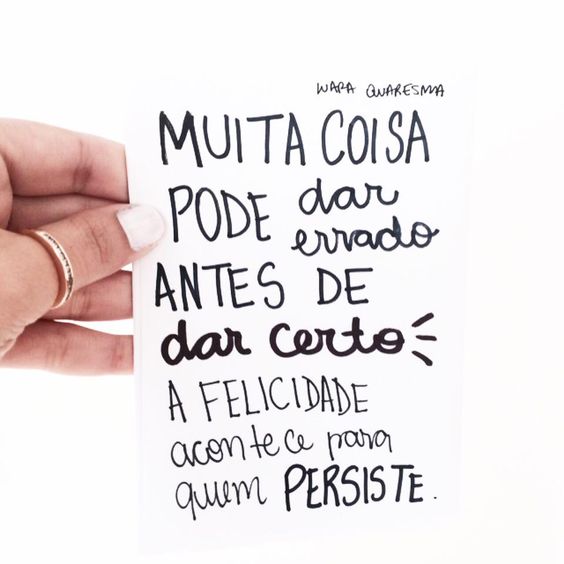 WAPA QUARESMA
MUITA COISA
PODE dar
errado
ANTES DE
dar certo
A FELICIDADE
acontece para
quem PERSISTE.